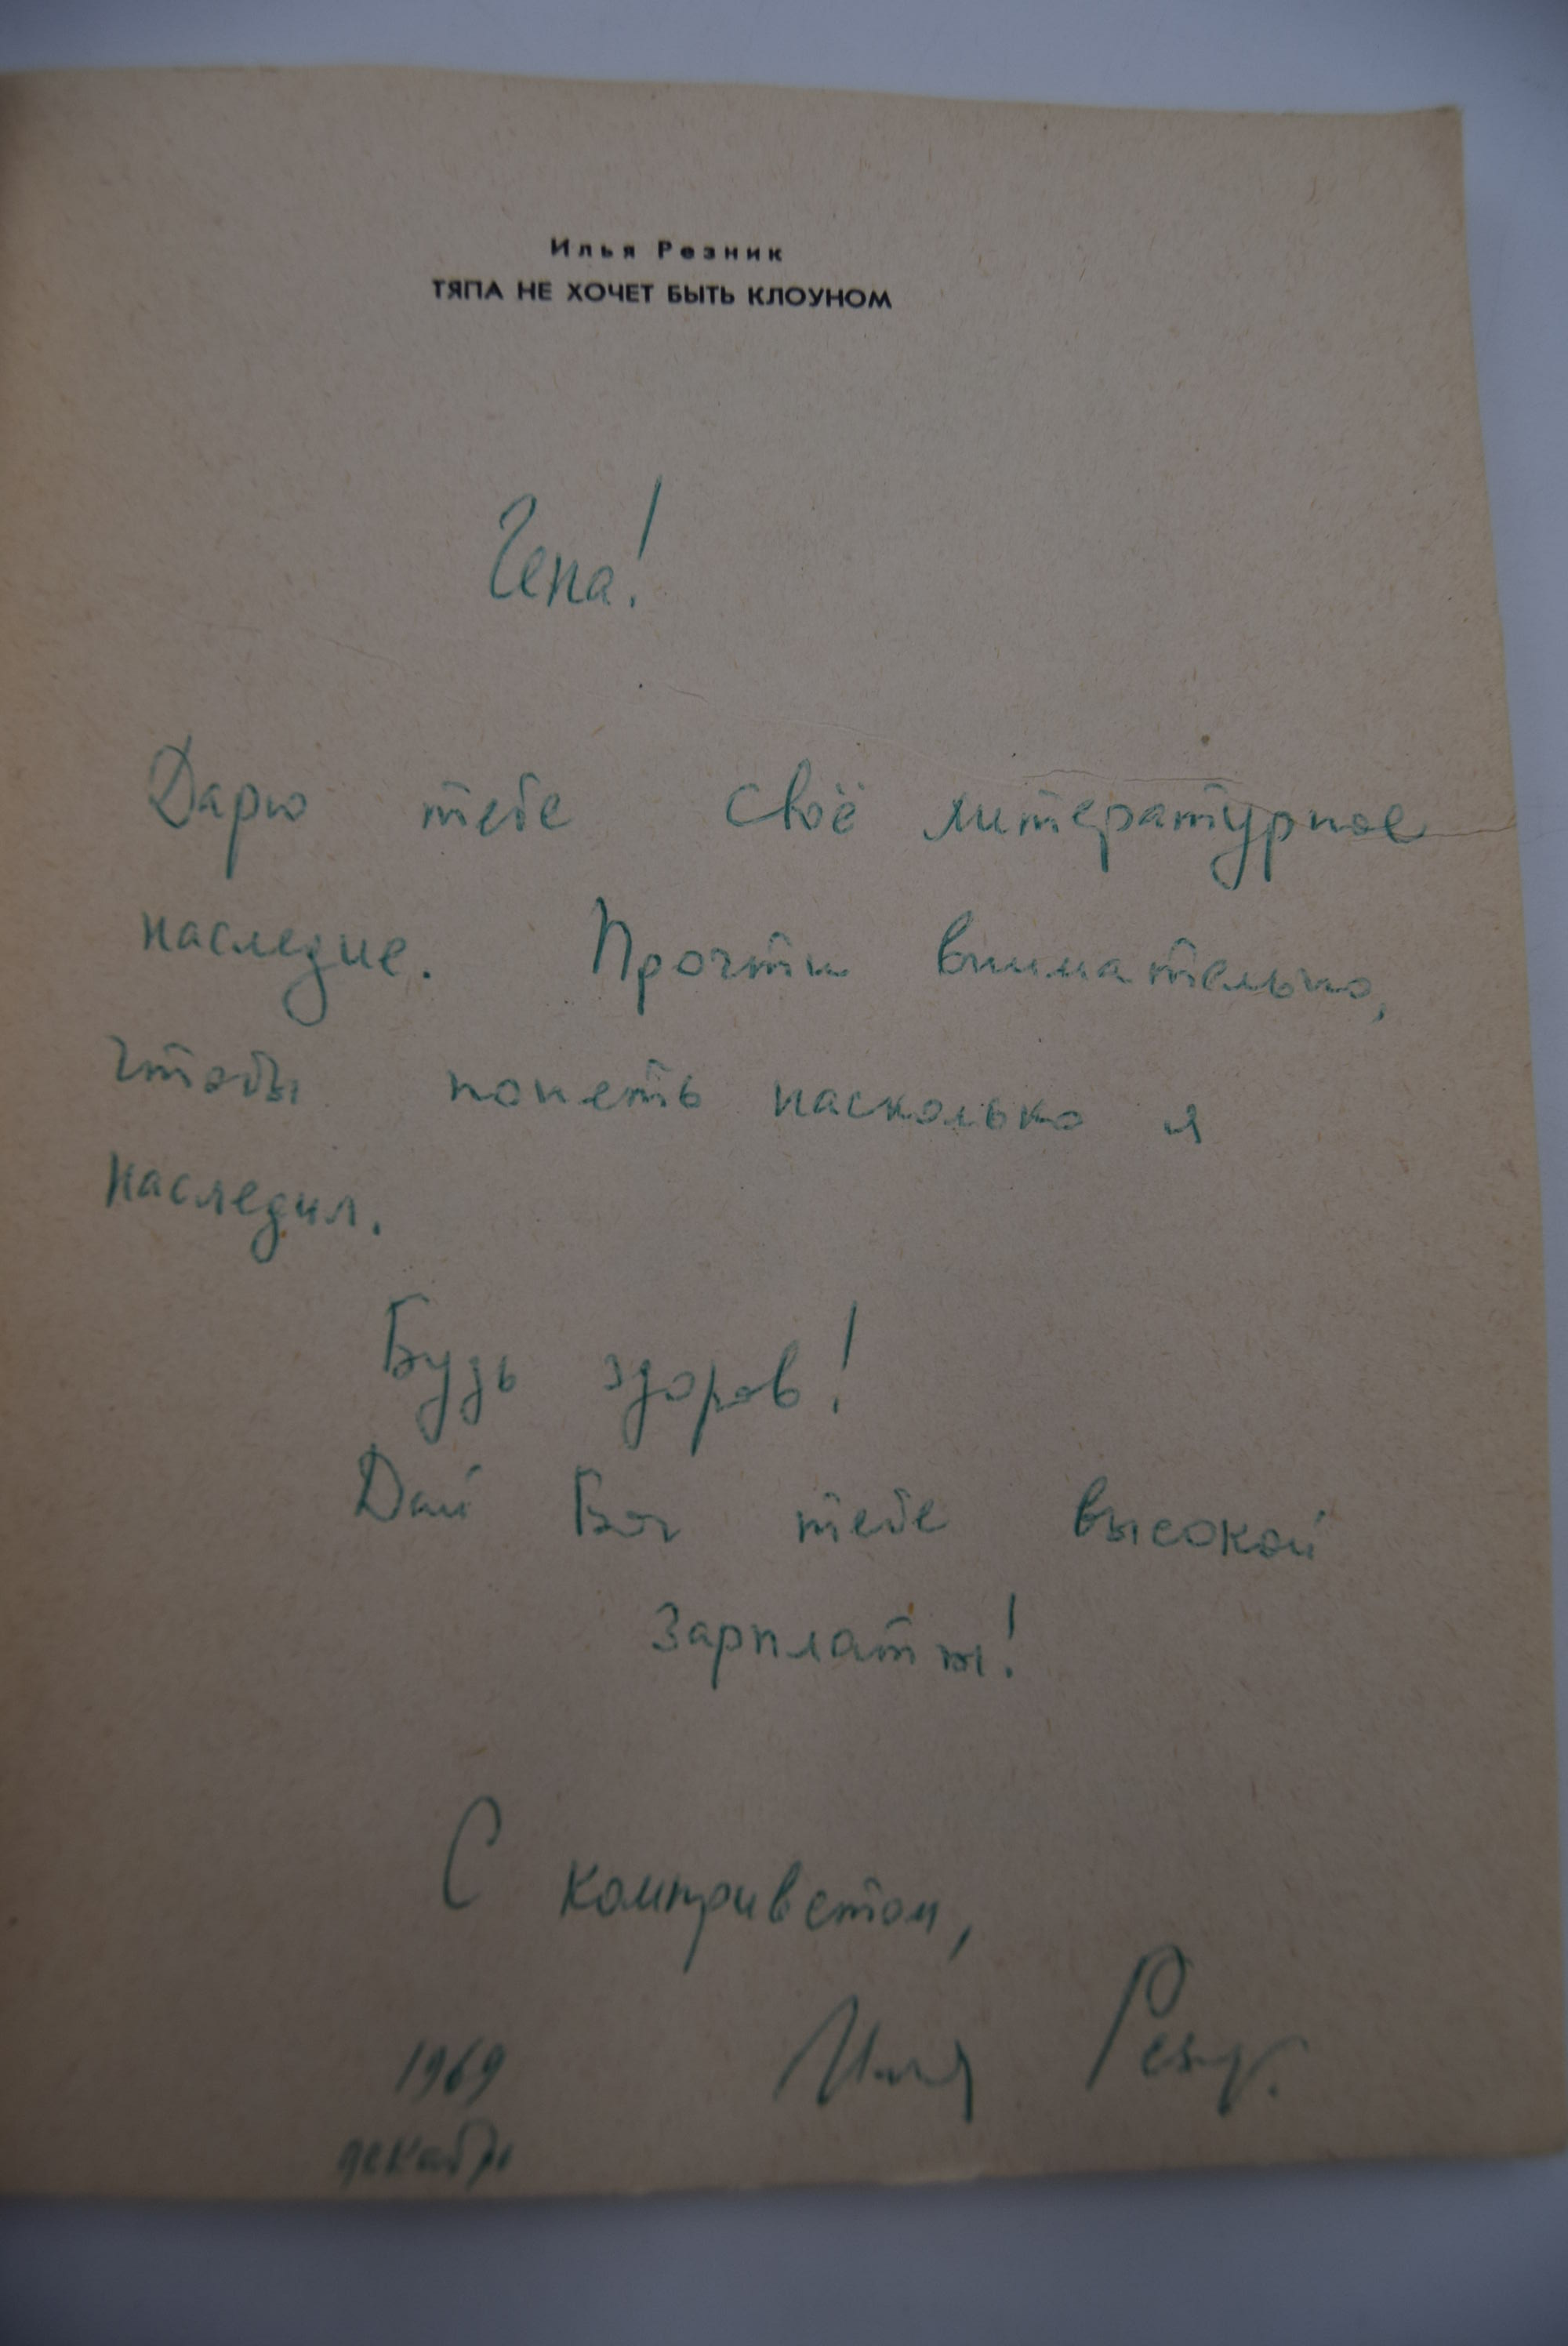 Илья Резник
ТЯПА НЕ ХОЧЕТ БЫТЬ КЛОУНОМ
Гена!
Дарю тебе своё литературное
наследие. Прочти внимательно,
чтобы понять насколько я
наследил.
Будь здоров!
Дай Бог тебе высокой
зарплаты!
С комприветом,
Илья Резн.
1969
декабрь